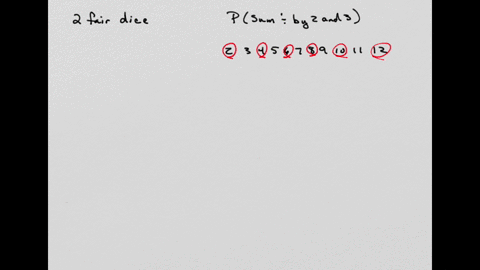 2 fair dice P(Sum ÷ by 2 and 3)
2 3 4 5 6 7 8 9 10 11 12